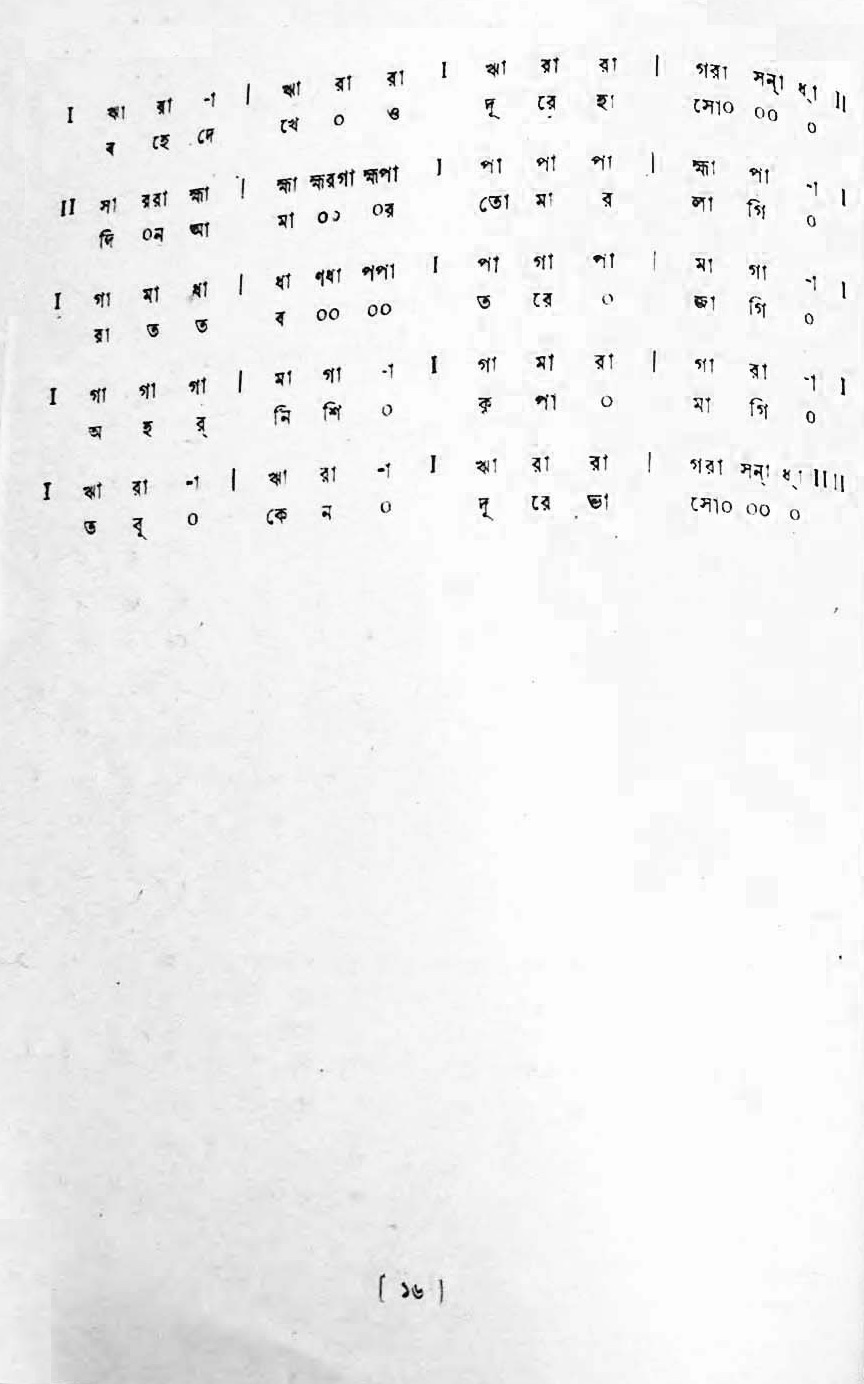 I ঋা রা -া | ঋা রা রা I ঋা রা রা | গরা সন্া ধ্া II
ব হে দে খে ০ ও দূ রে হা সো০ ০০ ০
II সা ররা হ্মা | হ্মা হ্মরগা হ্মপা I পা পা পা | হ্মা পা -া I
দি ০ন আ মা ০০ ০র তো মা র লা গি ০
I গা মা ধা | ধা ণধা পপা I পা গা পা | মা গা -া I
রা ত ত ব ০০ ০০ ত রে ০ জা গি ০
I গা গা গা | মা গা -া I গা মা রা | গা রা -া I
অ হ র্ নি শি ০ কৃ পা ০ মা গি ০
I ঋা রা -া | ঋা রা -া I ঋা রা রা | গরা সন্া ধ্া II II
ত বূ ০ কে ন ০ দূ রে ভা সো০ ০০ ০
[ ১৬ ]